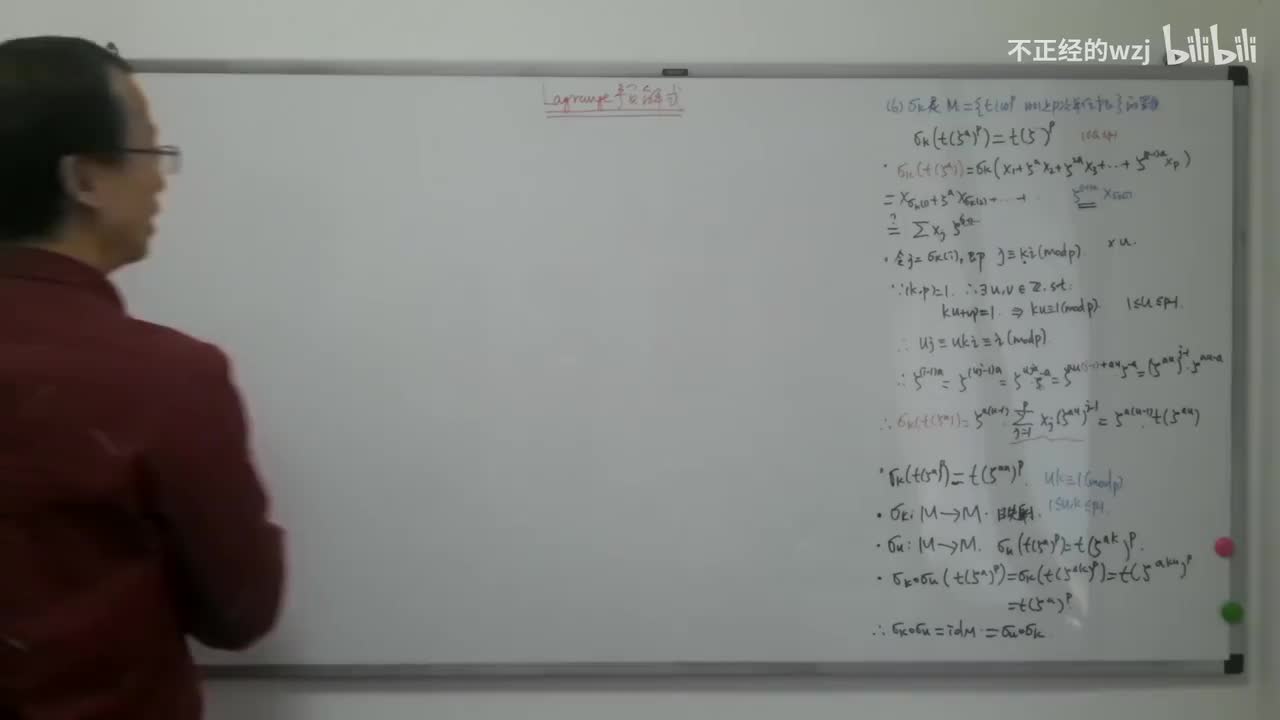 不正经的wzj bilibili
Lagrange预解式
(6) σk是 M={t(ζᵃ)ᵖ 的置换
σk(t(ζᵃ)ᵖ)=t(ζ )ᵖ 1≤a≤p-1
· σk(t(ζᵃ))=σk(x₁+ζᵃx₂+ζ²ᵃx₃+⋯+ζ⁽ᵖ⁻¹⁾ᵃxp)
=xσk(1)+ζᵃxσk(2)+⋯+
?= Σxj ζ
· 令j=σk(i), 即 j≡ki(mod p). ×u.
∵(k,p)=1. ∴∃u,v∈ℤ. s.t.
ku+vp=1. ⇒ ku≡1(mod p). 1≤u≤p-1.
∴ uj≡uki≡i(mod p).
∴ ζ⁽ⁱ⁻¹⁾ᵃ=ζ⁽ᵘʲ⁻¹⁾ᵃ=ζᵘʲᵃ·ζ⁻ᵃ=ζᵃᵘ⁽ʲ⁻¹⁾⁺ᵃᵘζ⁻ᵃ=(ζᵃᵘ)ʲ⁻¹·ζᵃᵘ⁻ᵃ
∴ σk(t(ζᵃ))=ζᵃ⁽ᵘ⁻¹⁾·Σ(j=1..p) xj(ζᵃᵘ)ʲ⁻¹=ζᵃ⁽ᵘ⁻¹⁾·t(ζᵃᵘ)
· σk(t(ζᵃ)ᵖ)=t(ζᵃᵘ)ᵖ. uk≡1(mod p)
1≤u,k≤p-1.
· σk: M→M. 映射.
· σu: M→M. σu(t(ζᵃ)ᵖ)=t(ζᵃᵏ)ᵖ.
· σk∘σu(t(ζᵃ)ᵖ)=σk(t(ζᵃᵏ)ᵖ)=t(ζᵃᵏᵘ)ᵖ
=t(ζᵃ)ᵖ.
∴ σk∘σu=idM=σu∘σk.